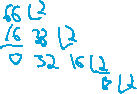 66 L2
16 33 L2
0 32 16 L2
8 L2